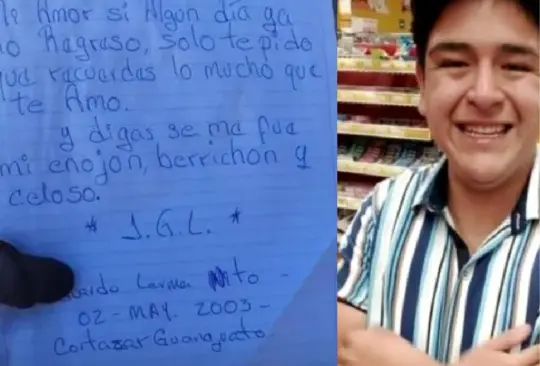 Amor si Algún día ya
no Ragraso, solo te pido
qua racuardas lo mucho que
te Amo.
y digas se ma fua
mi enojon, berrichon y
celoso.
* J.G.L. *
Larma Nto -
02 - MAY. 2003 -
Cortazar Guanajuato.